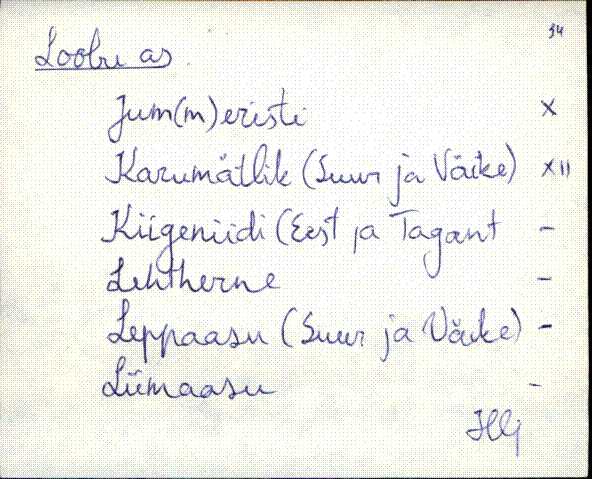 34
Loobu as
Jum(m)eristi x
Karumätlik (Suur ja Väike) x11
Kiigeniidi (Eest ja Tagant -
Lehtherne -
Leppaasu (Suur ja Väike) -
Liimaasu -